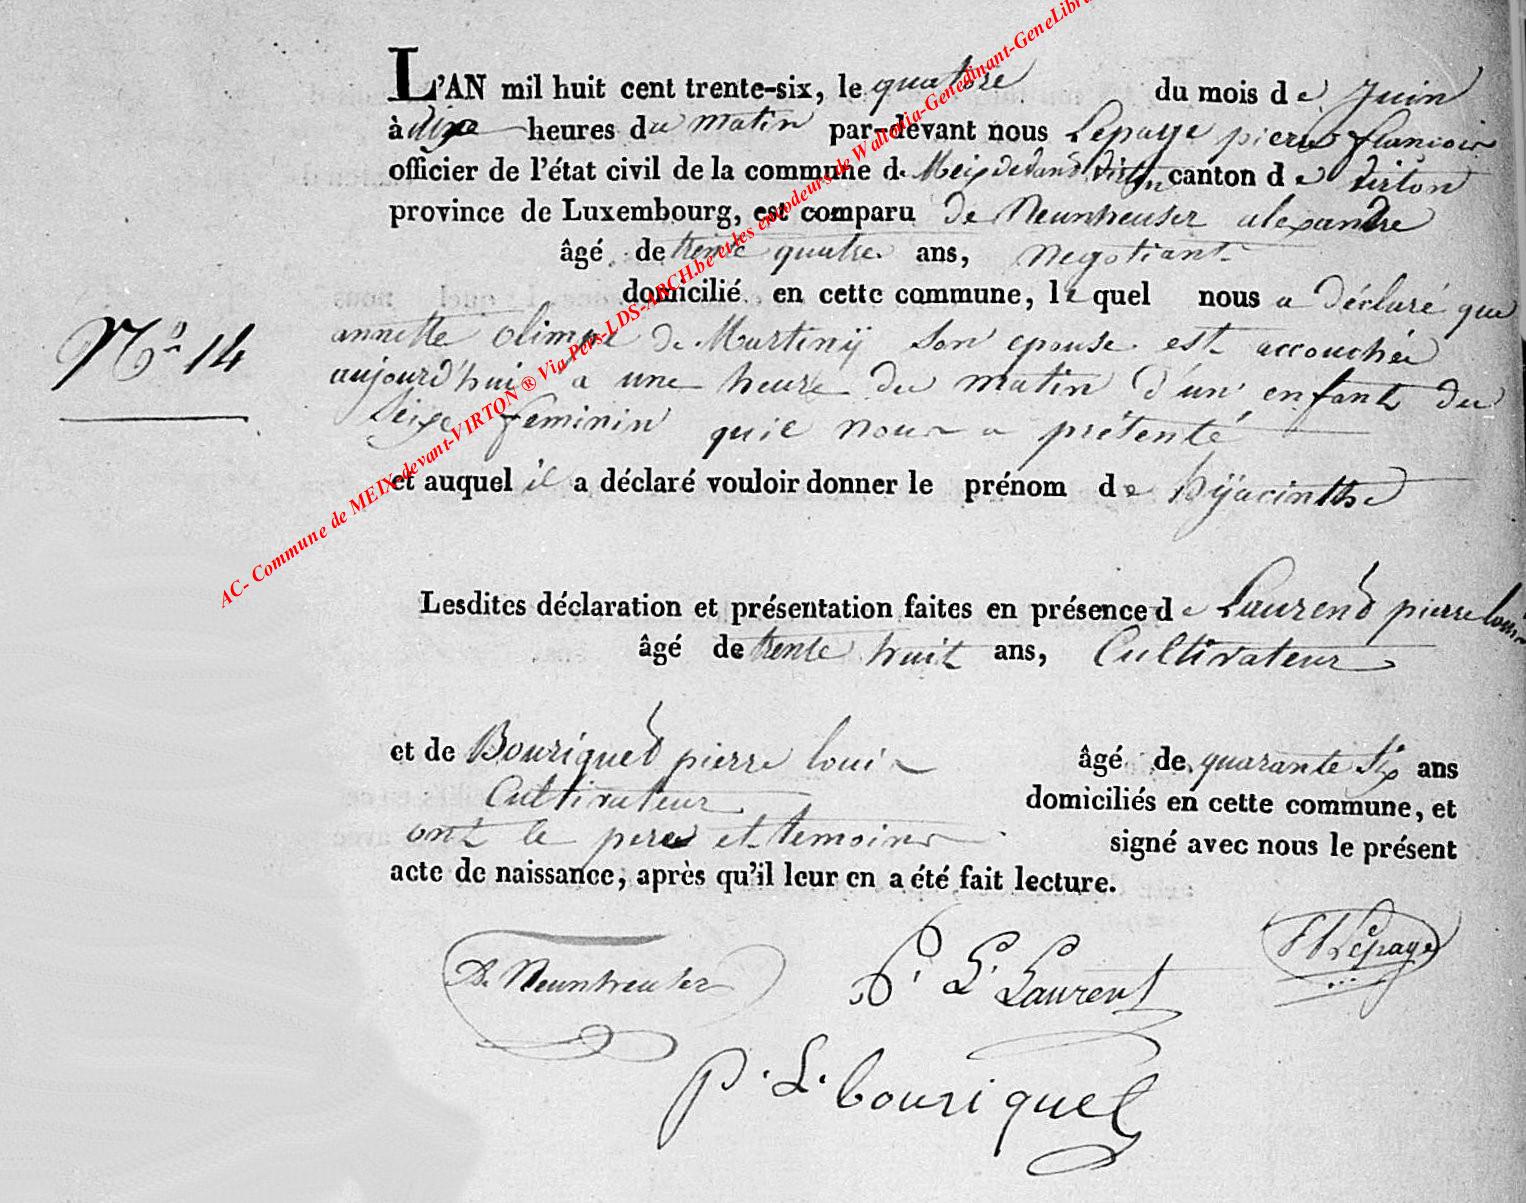 L'AN mil huit cent trente-six, le quatore du mois de Juin
à dix heures du matin par-devant nous Lepage pierre francois
officier de l'état civil de la commune de Meix devant Virton canton de virton
province de Luxembourg, est comparu de Neunheuser alexandre
âgé de trente quatre ans, negotiant
domicilié en cette commune, le quel nous a déclaré que
N° 14
annette olimpe de Martinÿ son epouse est accouchée
aujourd'hui a une heure du matin d'un enfant du
seixe feminin qu'il nous a présenté
et auquel il a déclaré vouloir donner le prénom de hÿacinthe
Lesdites déclaration et présentation faites en présence de Laurend pierre louis
âgé de trente huit ans, Cultivateur
et de Bouriquet pierre louis âgé de quarante six ans
Cultivateur domiciliés en cette commune, et
ont le pere et temoins signé avec nous le présent
acte de naissance, après qu'il leur en a été fait lecture.
D. Neunheuser P. L. Laurent Lepage
p. L. bouriquet
AC- Commune de MEIX-devant-VIRTON ® Via Pers-LDS-ARCH.be et les encodeurs de Wallonia-Genedinant-GeneLibra